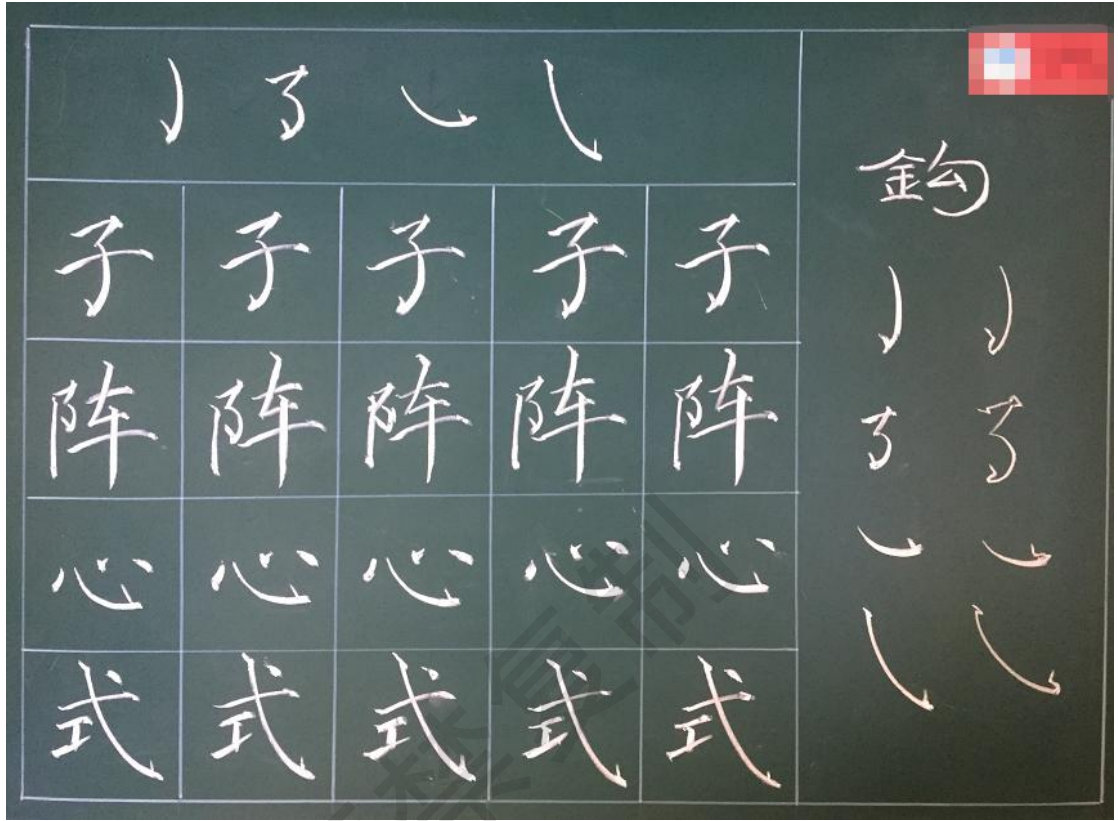 子 子 子 子 子
阵 阵 阵 阵 阵
心 心 心 心 心
式 式 式 式 式
鈎
禁复制